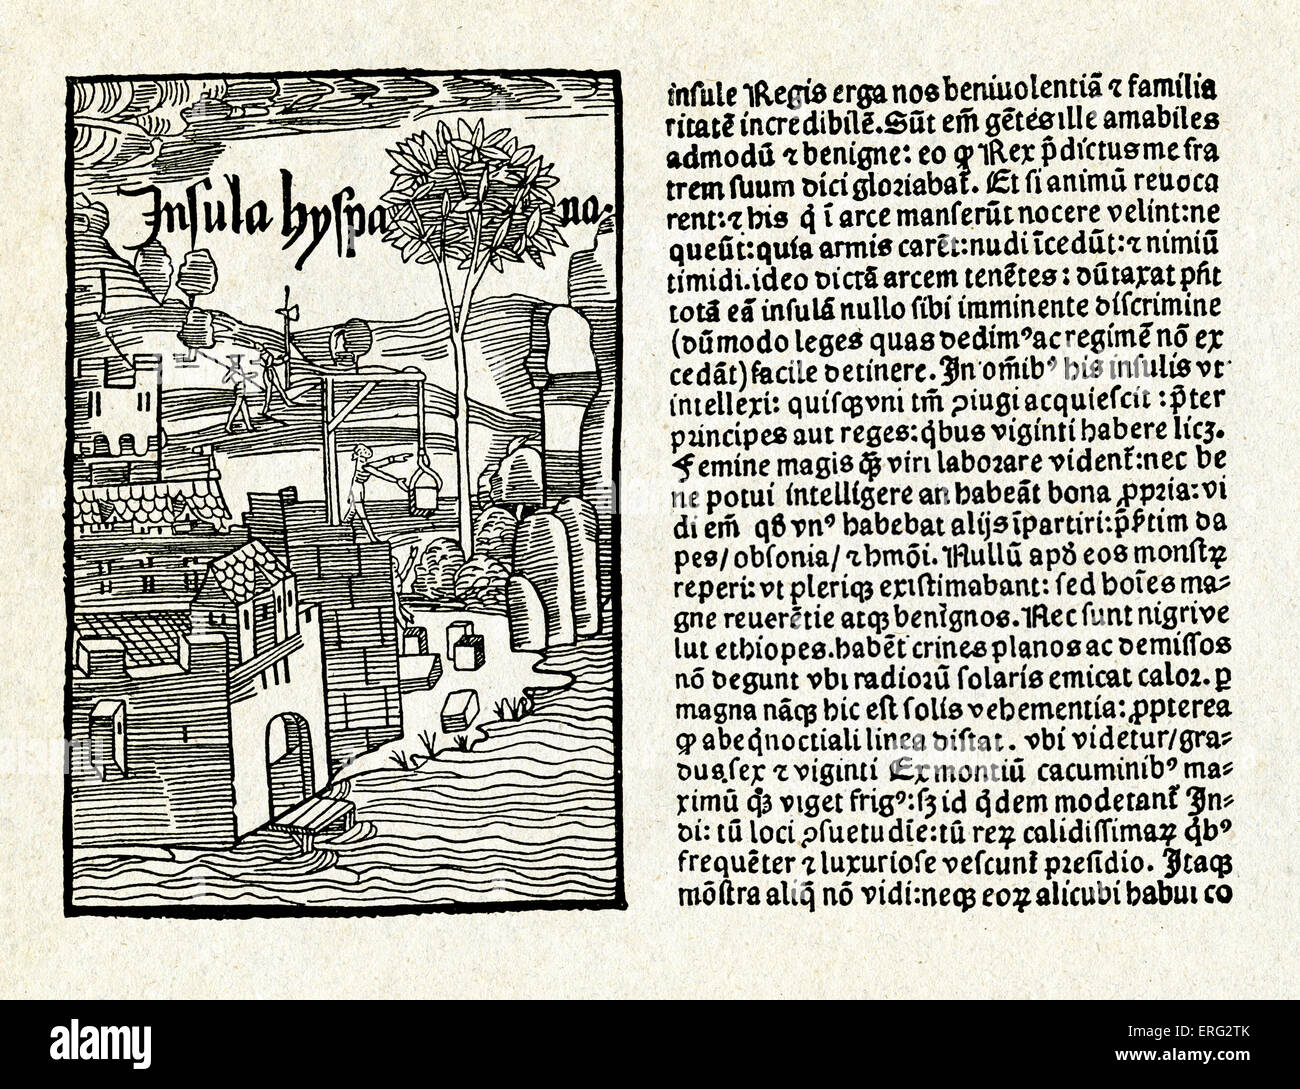 Insula hyspana.
insule Regis erga nos beniuolentiã ⁊ familia
ritatẽ incredibilẽ. Sũt em̃ gẽtes ille amabiles
admodũ ⁊ benigne: eo ꝙ Rex p̃dictus me fra
trem suum dici gloriabat̃. Et si animũ reuoca
rent: ⁊ his q̃ ĩ arce manserũt nocere velint: ne
queũt: quia armis carẽt: nudi ĩcedũt: ⁊ nimiũ
timidi. ideo dictã arcem tenẽtes: dũtaxat p̃n̄t
totã eã insulã nullo sibi imminente discrimine
(dũmodo leges quas dedimꝰ ac regimẽ nõ ex
cedãt) facile detinere. In om̃ibꝰ his insulis vt
intellexi: quisqꝫ vni tm̃ ꝯiugi acquiescit: p̃ter
principes aut reges: q̃bus viginti habere licꝫ.
Femine magis qꝫ̃ viri laborare vident̃: nec be
ne potui intelligere an habeãt bona ꝓpria: vi
di em̃ qð vnꝰ habebat alijs ĩpartiri: p̃s̃tim da
pes/ obsonia/ ⁊ hmõi. Nullũ apð eos monstꝝ
reperi: vt pleriqꝫ existimabant: sed hoĩes ma⸗
gne reuerẽtie atqꝫ benignos. Nec sunt nigri ve
lut ethiopes. habẽt crines planos ac demissos
nõ degunt vbi radiorũ solaris emicat calor. ꝑ
magna nãqꝫ hic est solis vehementia: ꝓpterea
ꝙ ab eq̃noctiali linea distat. vbi videtur/ gra⸗
dus sex ⁊ viginti Ex montiũ cacuminibꝰ ma⸗
ximũ qꝫ viget frigꝰ: sꝫ id q̃dem moderant̃ In⸗
di: tũ loci ꝯsuetudĩe: tũ reꝝ calidissimaꝝ q̃bꝰ
frequẽter ⁊ luxuriose vescunt̃ presidio. Itaqꝫ
mõstra aliq̃ nõ vidi: neqꝫ eoꝝ alicubi habui co
alamy stock photo
alamy
Image ID: ERG2TK
www.alamy.com